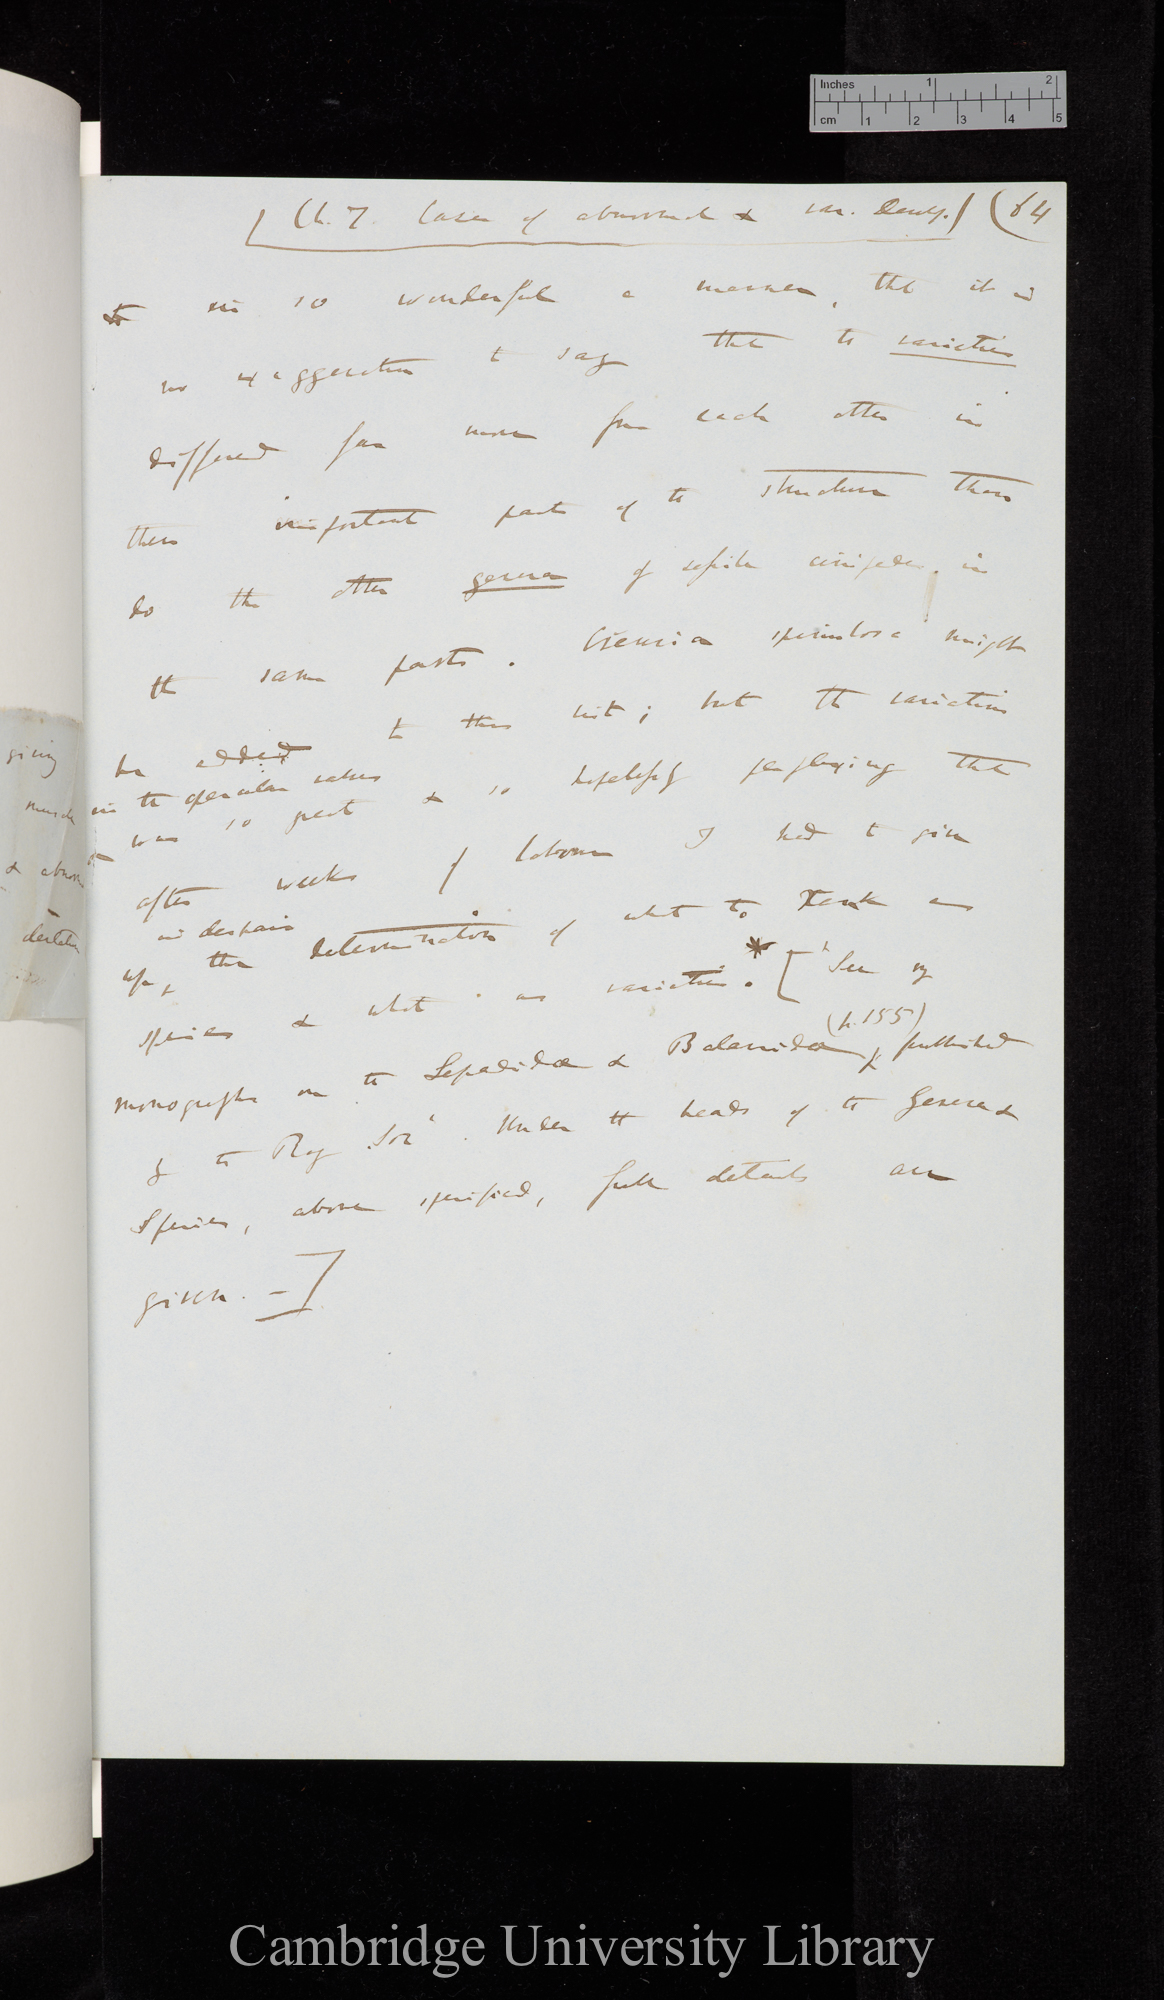 Inches 1 2
cm 1 2 3 4 5
[Ch. 7. Cases of abnormal & var. Devel.] (64
in so wonderful a manner, that it is
no exaggeration to say that the varieties
differed far more from each other in
these important parts of the structure than
do the other genera of sessile cirripedes in
the same parts. Creusia spinulosa might
be added to this list; but the variation
in the opercular valves
was so great & so hopelessly perplexing that
after weeks of labour I had to give
in despair
up, the determination of what to rank as
species & what as varieties. * [ See my
(p. 155)
monographs on the Lepadidæ & Balanidæ, published
by the Ray Soc. Under the heads of the Genera &
Species, above specified, full details are
given. —]
giving
muscle
&
Cambridge University Library